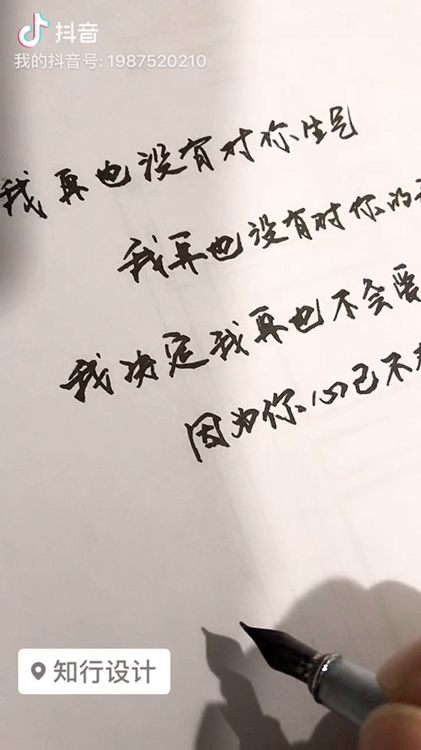 抖音
我的抖音号: 1987520210
我再也没有对你生
我再也没有对你的
我决定我再也不会爱
因为你心已不
知行设计